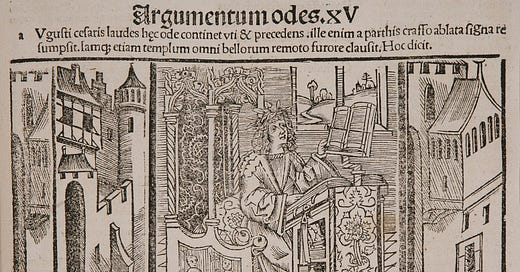 Argumentum odes.XV
a Vgusti cesaris laudes hęc ode continet vti & precedens. ille enim a parthis crasso ablata signa re
sumpsit. iamq; etiam templum omni bellorum remoto furore clausit. Hoc dicit.